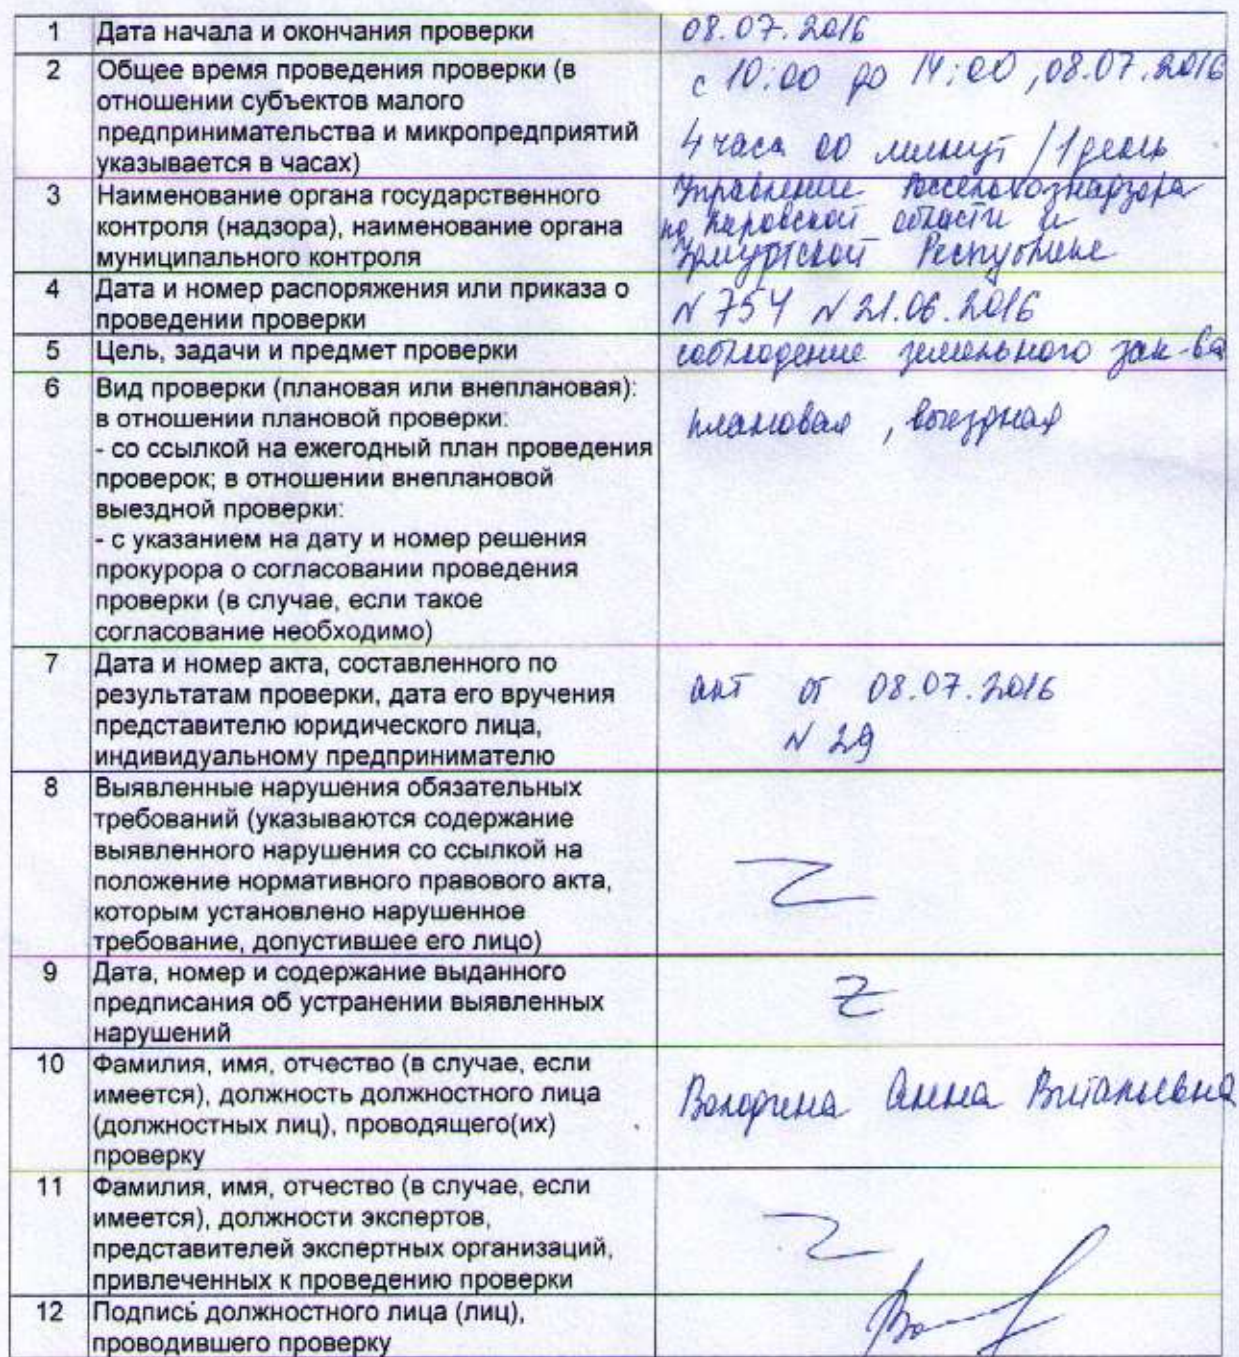 1 Дата начала и окончания проверки 08.07.2016
2 Общее время проведения проверки (в с 10:00 до 14:00, 08.07.2016
отношении субъектов малого
предпринимательства и микропредприятий 4 часа 00 минут / 1 день
указывается в часах)
3 Наименование органа государственного Управление Россельхознадзора
контроля (надзора), наименование органа по Кировской области и
муниципального контроля Удмуртской Республике
4 Дата и номер распоряжения или приказа о
проведении проверки N 754 N 21.06.2016
5 Цель, задачи и предмет проверки соблюдение земельного зак-ва
6 Вид проверки (плановая или внеплановая):
в отношении плановой проверки: плановая, выездная
- со ссылкой на ежегодный план проведения
проверок; в отношении внеплановой
выездной проверки:
- с указанием на дату и номер решения
прокурора о согласовании проведения
проверки (в случае, если такое
согласование необходимо)
7 Дата и номер акта, составленного по
результатам проверки, дата его вручения акт от 08.07.2016
представителю юридического лица,
индивидуальному предпринимателю N 29
8 Выявленные нарушения обязательных
требований (указываются содержание
выявленного нарушения со ссылкой на
положение нормативного правового акта,
которым установлено нарушенное
требование, допустившее его лицо)
9 Дата, номер и содержание выданного
предписания об устранении выявленных
нарушений
10 Фамилия, имя, отчество (в случае, если
имеется), должность должностного лица Володина Анна Витальевна
(должностных лиц), проводящего(их)
проверку
11 Фамилия, имя, отчество (в случае, если
имеется), должности экспертов,
представителей экспертных организаций,
привлеченных к проведению проверки
12 Подпись должностного лица (лиц),
проводившего проверку